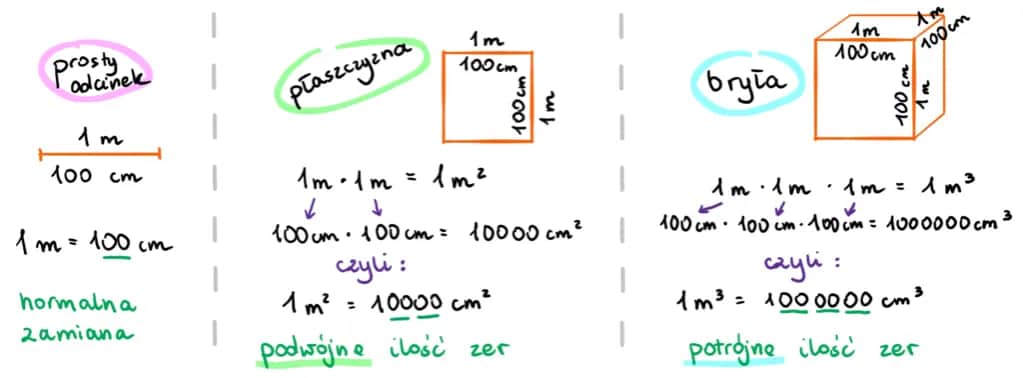 prosty
odcinek
1 m
100 cm
1 m = 100 cm
normalna
zamiana
płaszczyzna
1m
100cm
100cm
1m
1m · 1m = 1m²
100cm · 100cm = 10000 cm²
czyli :
1 m² = 10000 cm²
podwójne ilość zer
bryła
1m
100cm
1m
100cm
100cm
1m
1m · 1m · 1m = 1 m³
100cm · 100cm · 100cm = 1000000 cm³
czyli :
1 m³ = 1000000 cm³
potrójne ilość zer